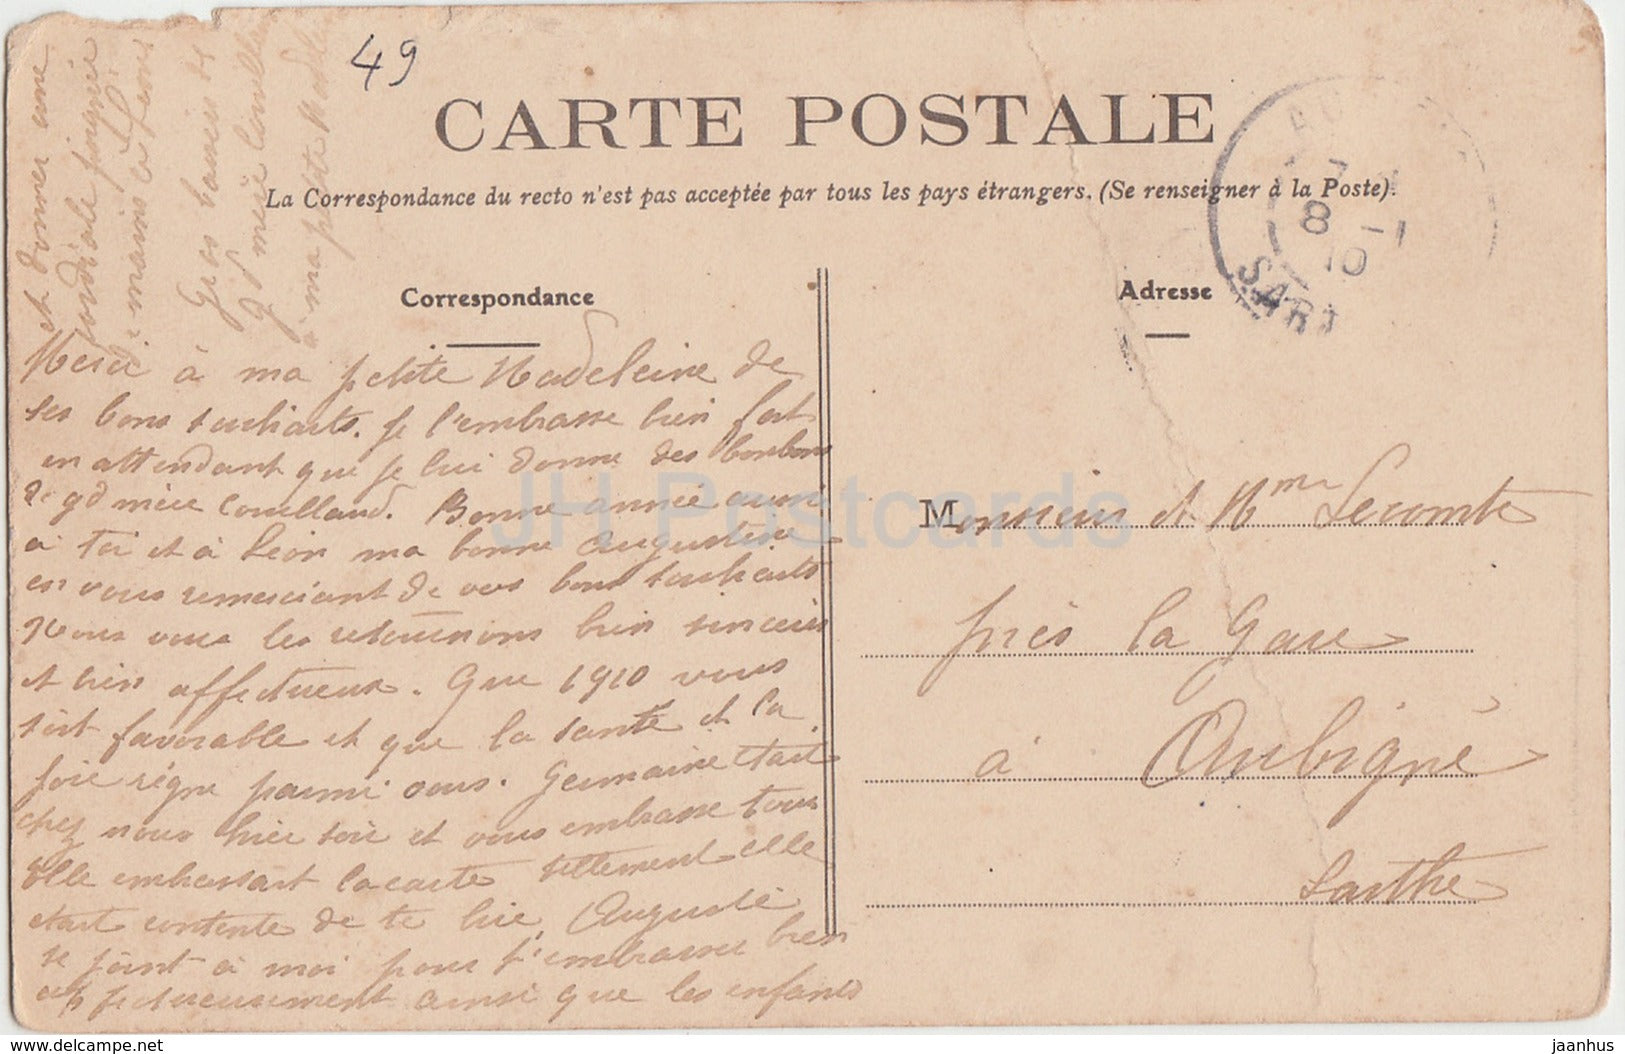 49
CARTE POSTALE
La Correspondance du recto n'est pas acceptée par tous les pays étrangers. (Se renseigner à la Poste).
Correspondance
Merci à ma petite Madeleine de
ses bons souhaits. Je l'embrasse bien fort
en attendant que je lui donne des bonbons
de gd mère Couilland. Bonne année aussi
à toi et à Léon ma bonne Augustine
en vous remerciant de vos bons souhaits
Nous vous les retournons bien sincères
et bien affectueux. Que 1910 vous
soit favorable et que la santé et la
joie règne parmi vous. Germaine était
chez nous hier soir et vous embrasse tous
Elle embrassait la carte tellement elle
était contente de te lire. Auguste
se joint à moi pour t'embrasser bien
affectueusement ainsi que les enfants
et donner une
cordiale poignée
mains
Gros baisers de
gd mère
à ma petite Madeleine
Adresse
8 -1
10
SART
Monsieur et Mme Lecomte
près la Gare
à Aubigné
Sarthe
JH Postcards
delcampe.net
jaanhus